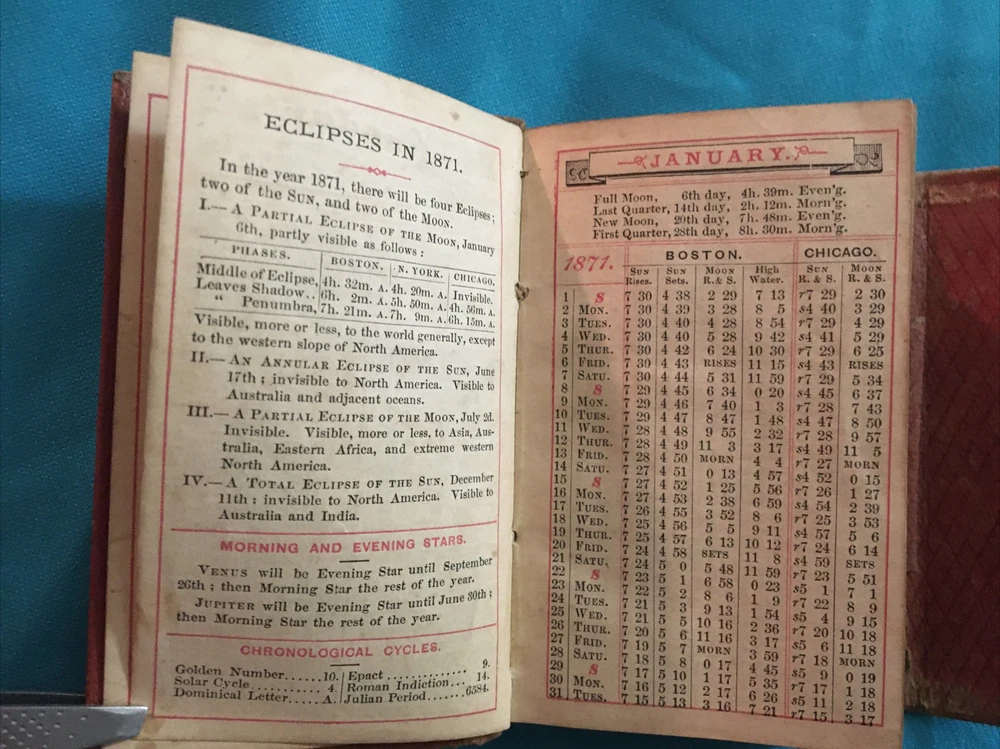 ECLIPSES IN 1871.
In the year 1871, there will be four Eclipses;
two of the SUN, and two of the MOON.
I.—A PARTIAL ECLIPSE OF THE MOON, January
6th, partly visible as follows:
PHASES. BOSTON. N. YORK. CHICAGO.
Middle of Eclipse, 4h. 32m. A. 4h. 20m. A. Invisible.
Leaves Shadow.. 6h. 2m. A. 5h. 50m. A. 4h. 56m. A.
" Penumbra, 7h. 21m. A. 7h. 9m. A. 6h. 15m. A.
Visible, more or less, to the world generally, except
to the western slope of North America.
II.—AN ANNULAR ECLIPSE OF THE SUN, June
17th; invisible to North America. Visible to
Australia and adjacent oceans.
III.—A PARTIAL ECLIPSE OF THE MOON, July 2d.
Invisible. Visible, more or less, to Asia, Aus-
tralia, Eastern Africa, and extreme western
North America.
IV.—A TOTAL ECLIPSE OF THE SUN, December
11th; invisible to North America. Visible to
Australia and India.
MORNING AND EVENING STARS.
VENUS will be Evening Star until September
26th; then Morning Star the rest of the year.
JUPITER will be Evening Star until June 30th;
then Morning Star the rest of the year.
CHRONOLOGICAL CYCLES.
Golden Number......10. Epact.............. 9.
Solar Cycle.......... 4. Roman Indiction... 14.
Dominical Letter....A. Julian Period......6584.
JANUARY.
Full Moon, 6th day, 4h. 39m. Even'g.
Last Quarter, 14th day, 2h. 12m. Morn'g.
New Moon, 20th day, 7h. 48m. Even'g.
First Quarter, 28th day, 8h. 30m. Morn'g.
1871. BOSTON. CHICAGO.
SUN SUN MOON High SUN MOON
Rises. Sets. R. & S. Water. R. & S. R. & S.
1 S 7 30 4 38 2 29 7 13 r7 29 2 30
2 MON. 7 30 4 39 3 28 8 5 s4 40 3 29
3 TUES. 7 30 4 40 4 28 8 54 r7 29 4 29
4 WED. 7 30 4 40 5 28 9 42 s4 41 5 29
5 THUR. 7 30 4 42 6 24 10 30 r7 29 6 25
6 FRID. 7 30 4 43 RISES 11 15 s4 43 RISES
7 SATU. 7 30 4 44 5 31 11 59 r7 29 5 34
8 S 7 29 4 45 6 34 0 20 s4 45 6 37
9 MON. 7 29 4 46 7 40 1 3 r7 28 7 43
10 TUES. 7 29 4 47 8 47 1 48 s4 47 8 50
11 WED. 7 28 4 48 9 55 2 32 r7 28 9 57
12 THUR. 7 28 4 49 11 3 3 17 s4 49 11 5
13 FRID. 7 28 4 50 MORN 4 4 r7 27 MORN
14 SATU. 7 27 4 51 0 13 4 57 s4 52 0 15
15 S 7 27 4 52 1 25 5 56 r7 26 1 27
16 MON. 7 27 4 53 2 38 6 59 s4 54 2 39
17 TUES. 7 26 4 55 3 52 8 6 r7 25 3 53
18 WED. 7 25 4 56 5 5 9 11 s4 57 5 6
19 THUR. 7 25 4 57 6 13 10 12 r7 24 6 14
20 FRID. 7 24 4 58 SETS 11 8 s4 59 SETS
21 SATU. 7 24 5 0 5 48 11 59 r7 23 5 51
22 S 7 23 5 1 6 58 0 23 s5 1 7 1
23 MON. 7 22 5 2 8 6 1 9 r7 22 8 9
24 TUES. 7 21 5 3 9 13 1 54 s5 4 9 15
25 WED. 7 21 5 5 10 16 2 36 r7 20 10 18
26 THUR. 7 20 5 6 11 16 3 17 s5 6 11 18
27 FRID. 7 19 5 7 MORN 3 59 r7 18 MORN
28 SATU. 7 18 5 8 0 17 4 45 s5 9 0 19
29 S 7 17 5 10 1 17 5 35 r7 17 1 18
30 MON. 7 16 5 12 2 17 6 26 s5 11 2 18
31 TUES. 7 15 5 13 3 16 7 21 r7 15 3 17